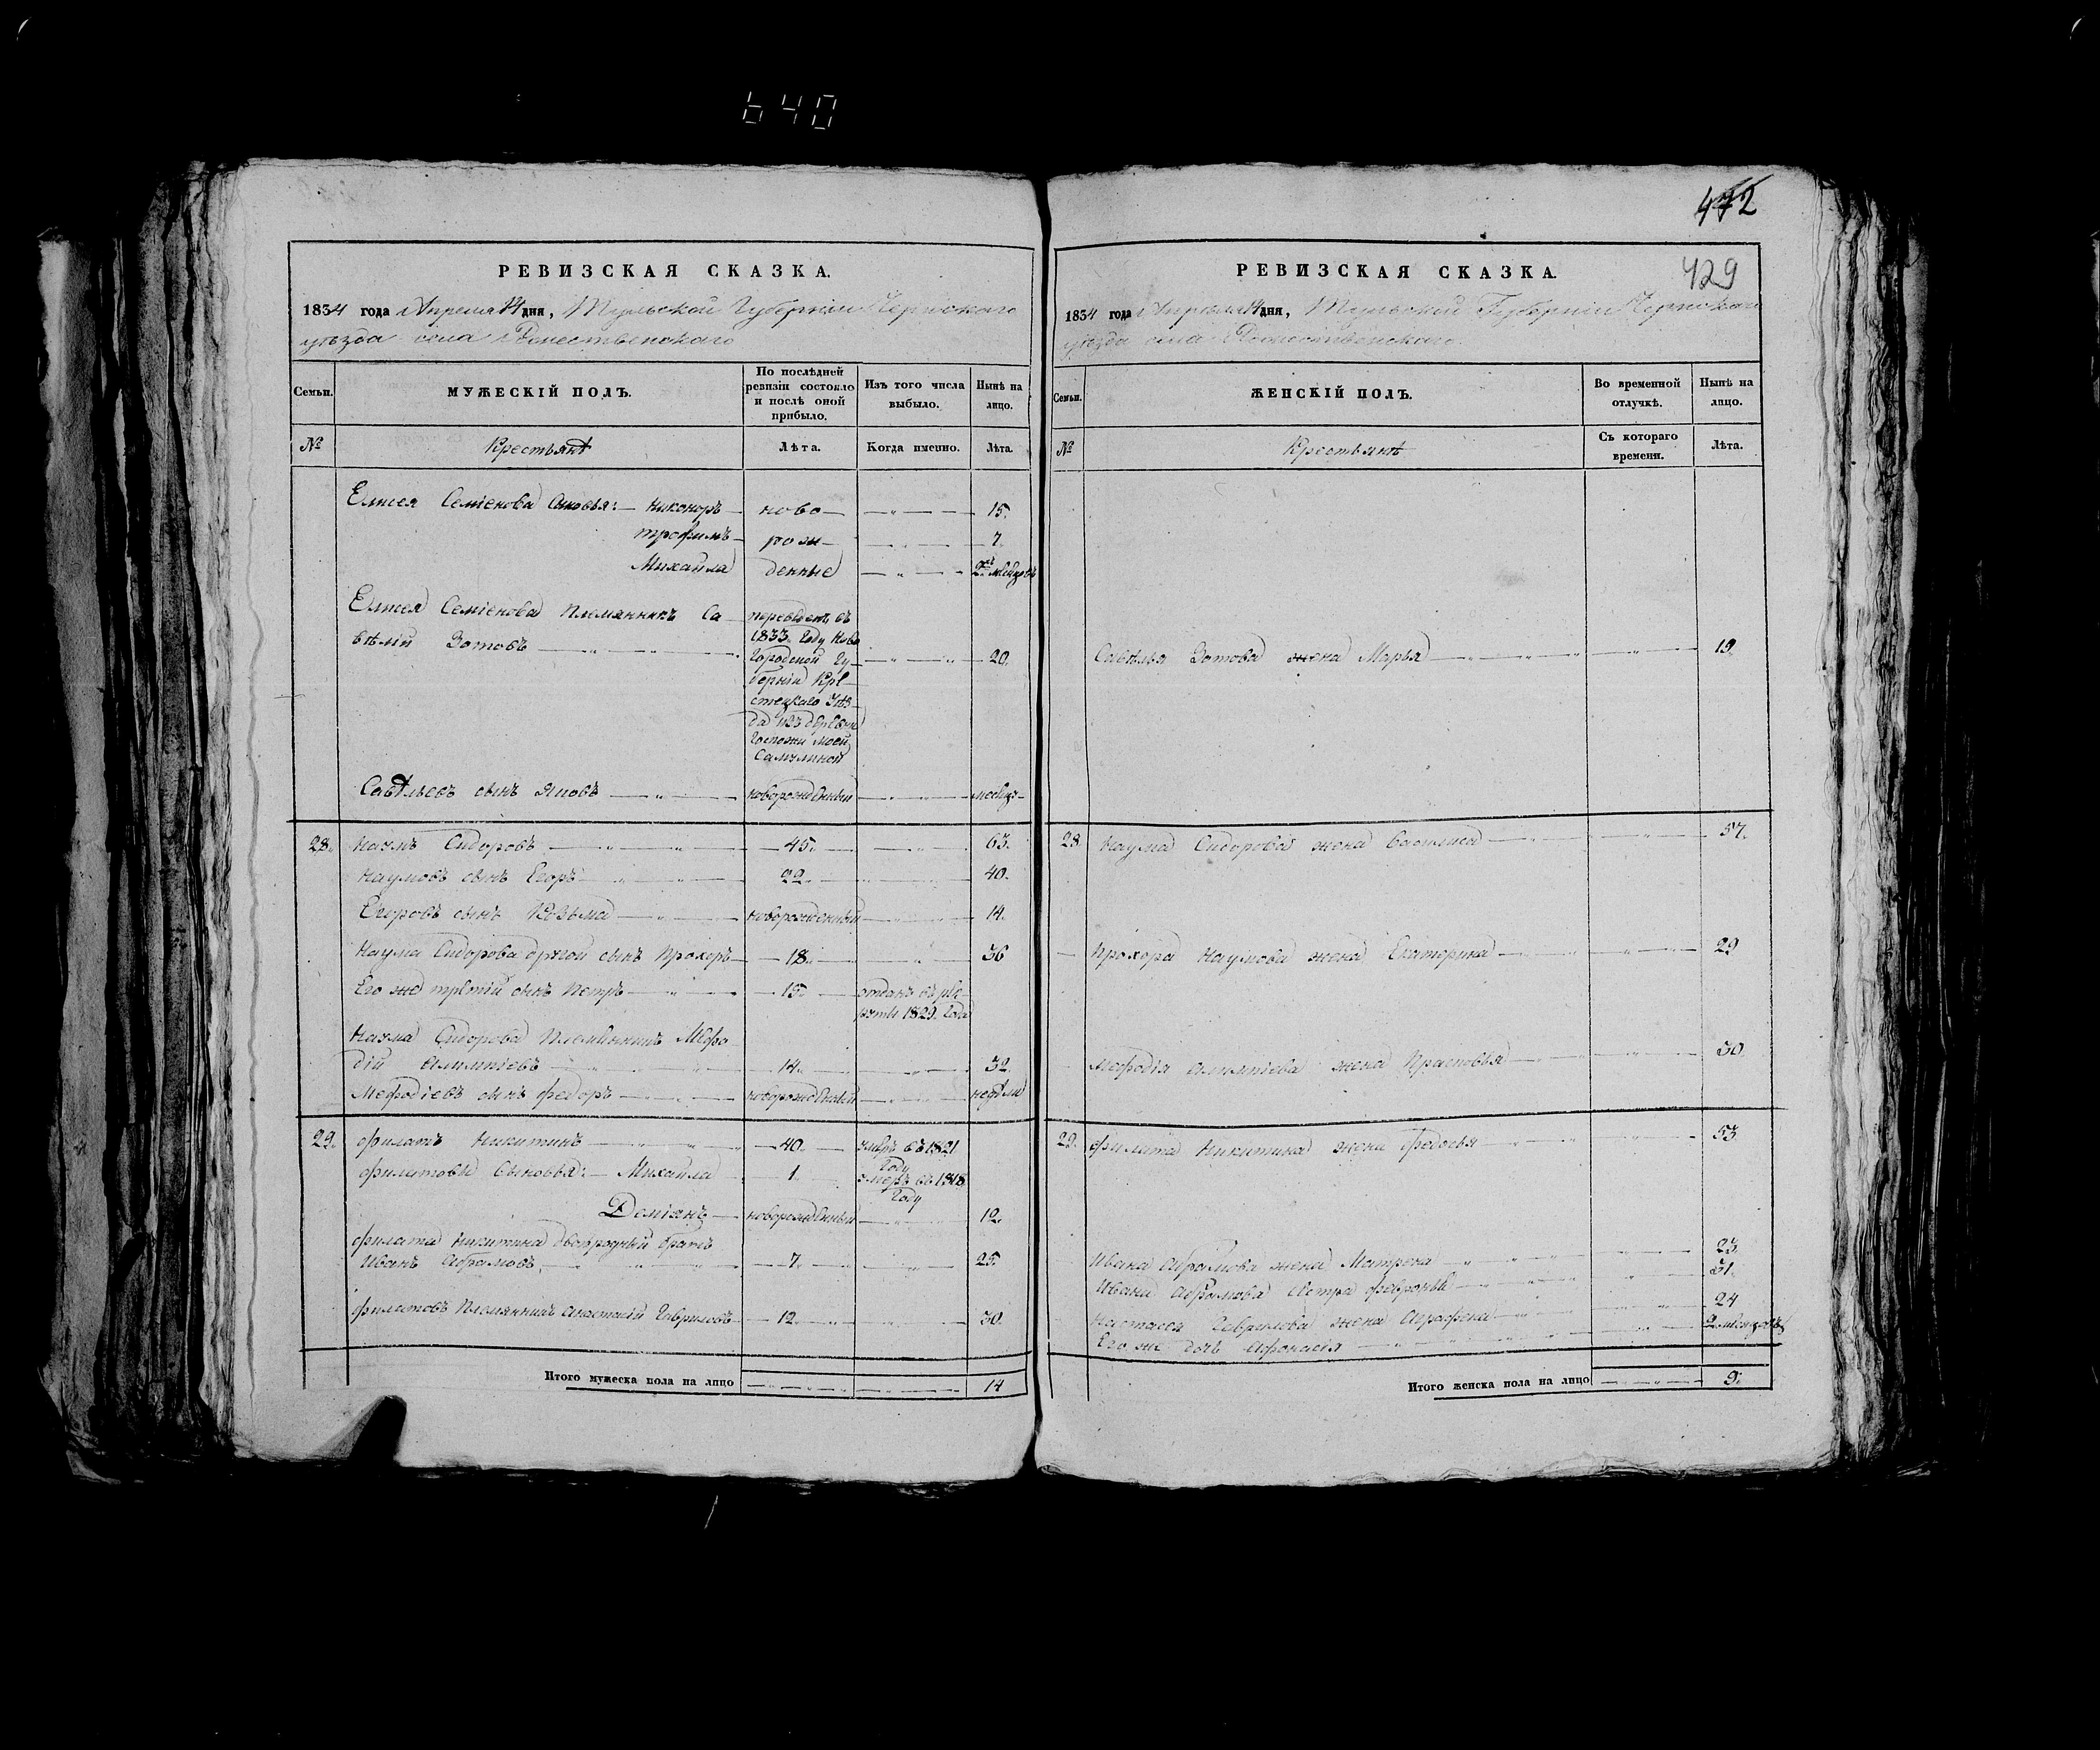 640
472
429
РЕВИЗСКАЯ СКАЗКА.
1834 года Апреля 14 дня, Тульской Губерніи Чернскаго
уѣзда села Рожественскаго
Семьи.
МУЖЕСКІЙ ПОЛЪ.
По послѣдней ревизіи состояло и послѣ оной прибыло.
Изъ того числа выбыло.
Нынѣ на лицо.
№
Крестьянѣ
Лѣта.
Когда именно.
Лѣта.
Елисея Семіенова Сыновья: Никоноръ ново 15.
трофимъ рож 7.
Михайла денные 2хъ месяцовъ
Елисея Семіенова Племянникъ Са переведенъ въ
вѣлій Зотовъ 1833. Году Ново
Городской Гу 20.
берніи Кре
стецкаго Уѣз
да изъ деревни
Госпожи моей
Савѣльевъ сынъ Яковъ новорожденный месяц
28. Наумъ Сидоровъ 45. 63.
Наумовъ сынъ Егоръ 22. 40.
Егоровъ сынъ Козьма новорожденный 14.
Наума Сидорова другой сынъ Прохоръ 18. 36
Его же третій сынъ Петръ 15. отданъ въ рек
руты 1829. Года
Наума Сидорова Племянникъ Мефо
дій Алимпіевъ 14. 32.
Мефодіевъ сынъ федоръ новорожденный недѣли
29. филатъ Никитинъ 40. умеръ въ 1821
Году
филатовы Сыновья: Михайла 1. умеръ въ 1818
Году
Деміянъ новорожденный 12.
филата Никитина двоюродный братъ
Иванъ Абрамовъ 7. 25.
филатовъ Племянникъ Анастасій Гавриловъ 12. 30.
Итого мужеска пола на лицо 14
РЕВИЗСКАЯ СКАЗКА.
1834 года Апреля 14 дня, Тульской Губерніи Чернскаго
уѣзда села Рожественскаго.
Семьи.
ЖЕНСКІЙ ПОЛЪ.
Во временной отлучкѣ.
Нынѣ на лицо.
№
Крестьянѣ
Съ котораго времени.
Лѣта.
Савелья Зотова жена Марья 19.
28. Наума Сидорова жена Василиса 57.
Прохора Наумова жена Екатерина 29
Мефодія Алимпіева жена Прасковья 30
29. филата Никитина жена федосья 53
Ивана Абрамова жена Матрена 23.
Ивана Абрамова сестра февронья 31.
Настасея Гаврилова жена Аграфена 24
Его же дочь Афонасія 2 месяцовъ
Итого женска пола на лицо 9.